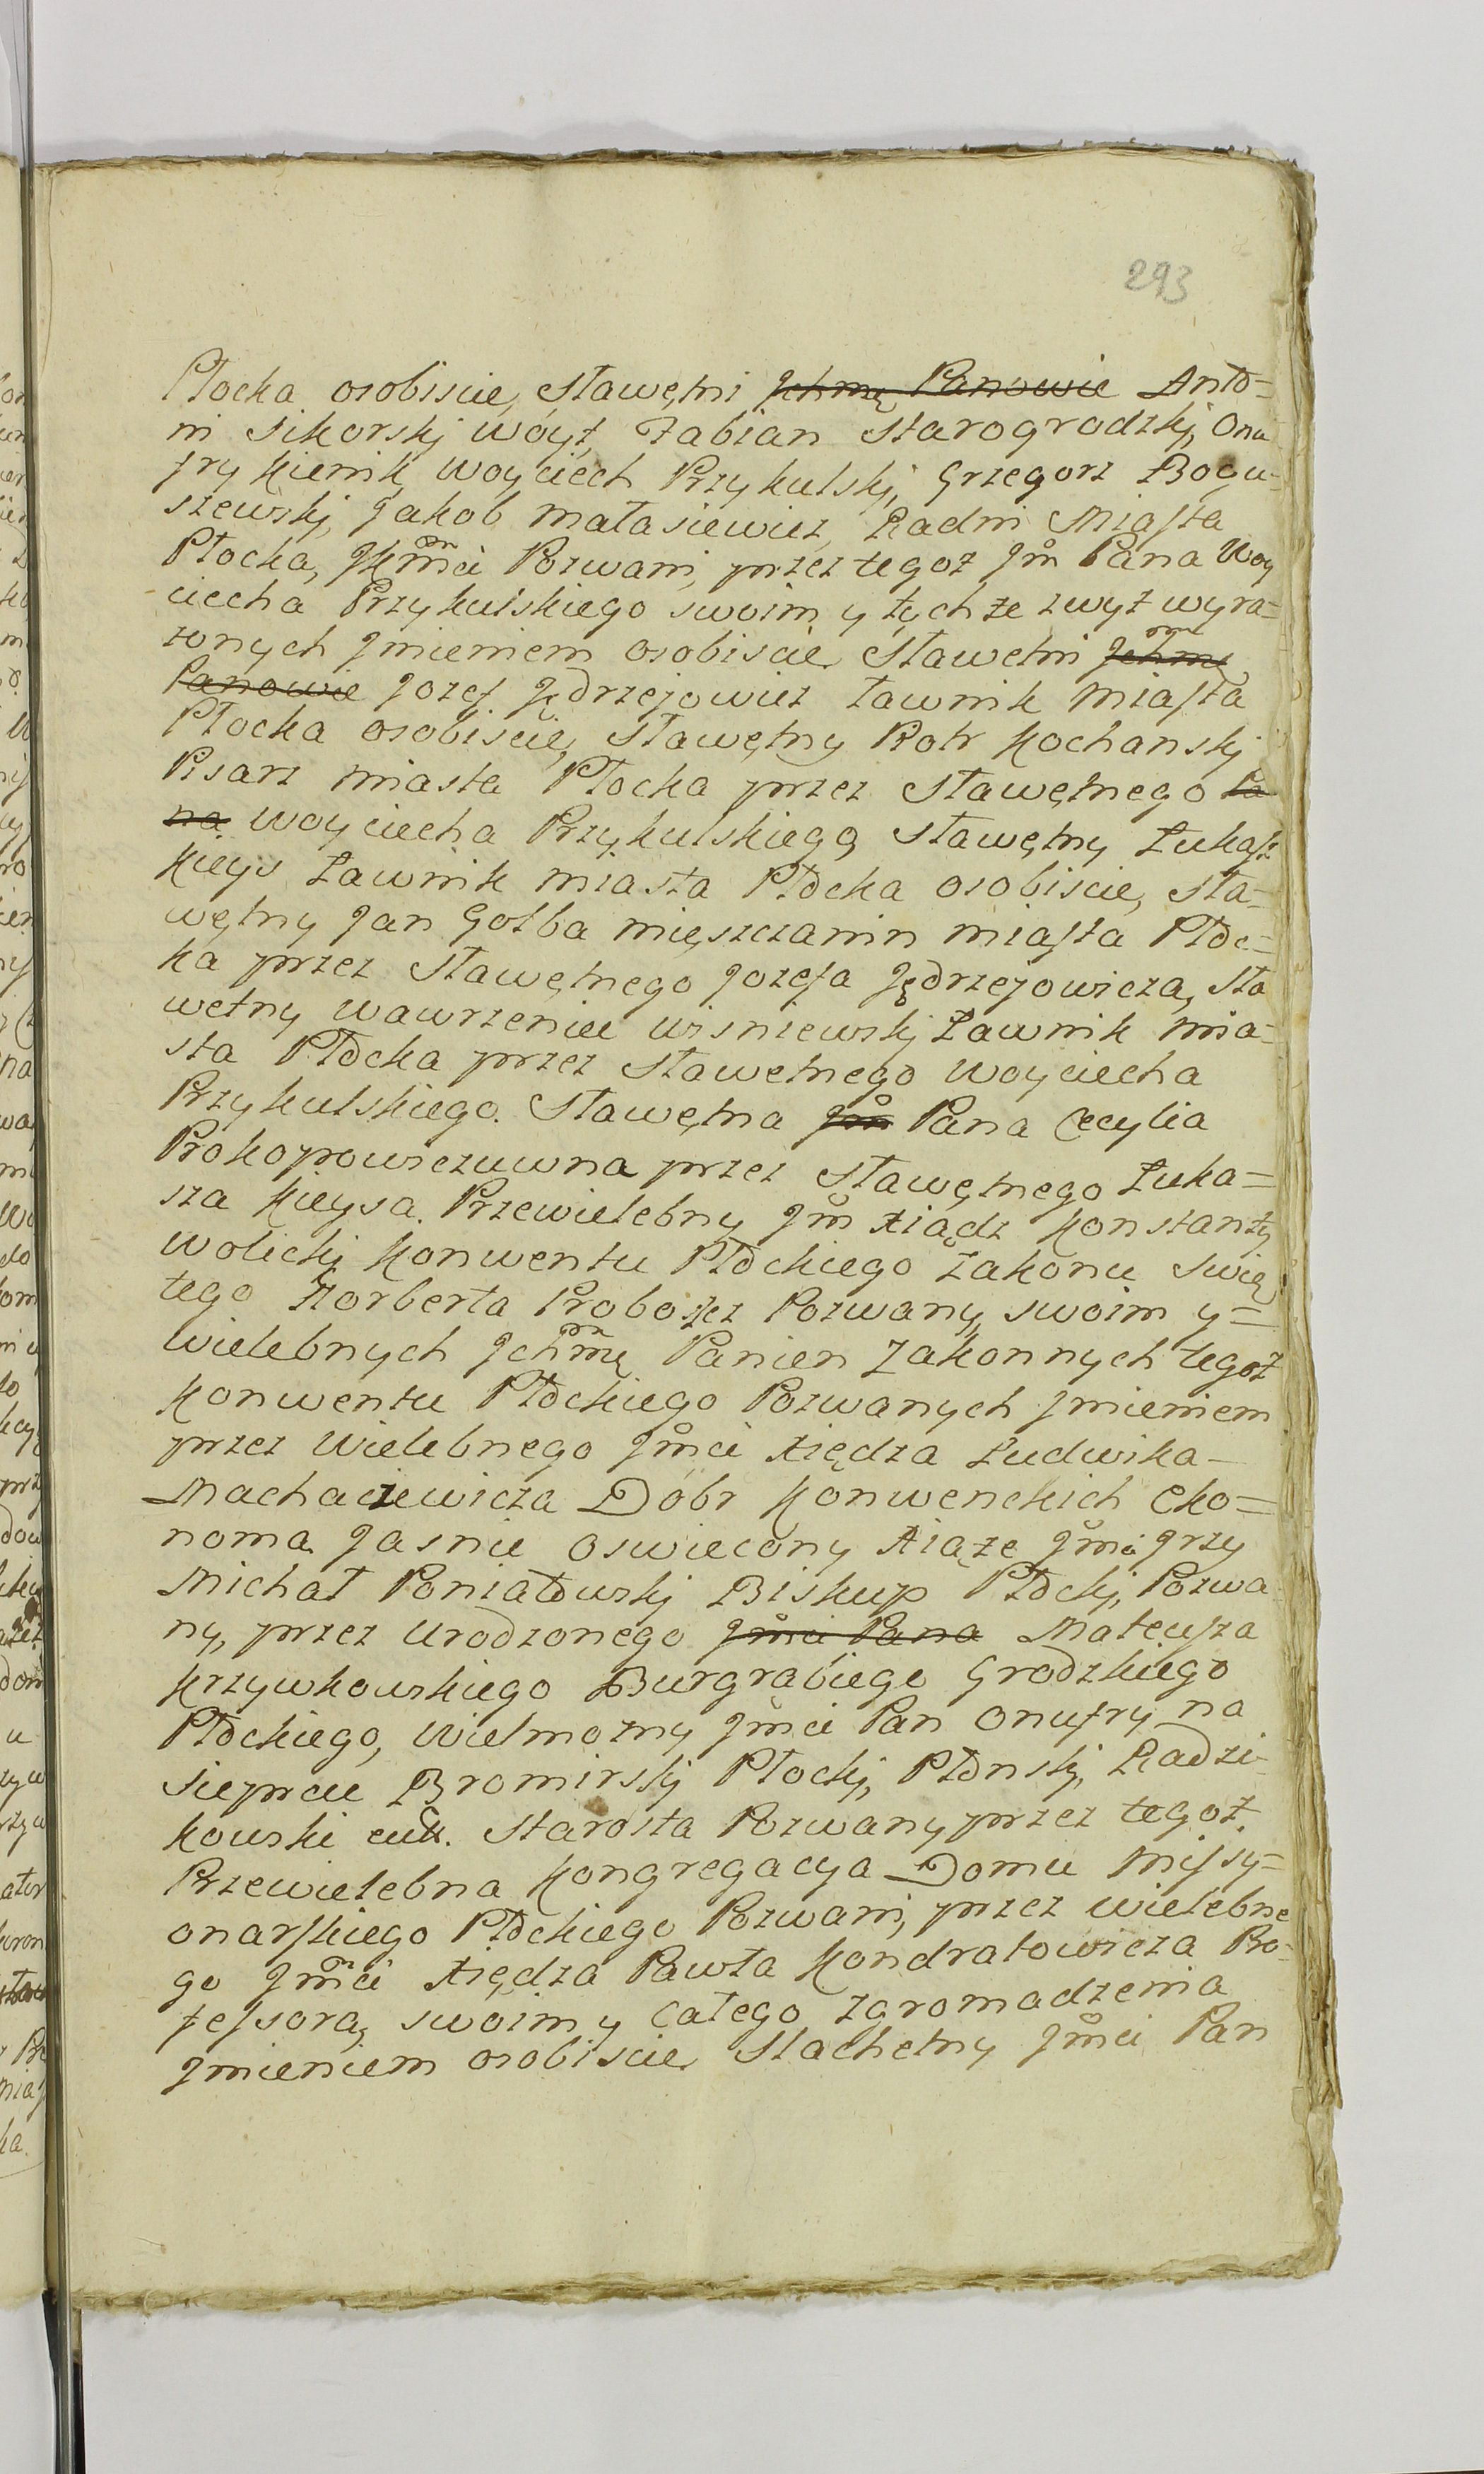 293
Płocka osobiscie, Sławętni Ichmę Panowie Anto=
ni Sikorskj Woyt, Fabian Starogrodzkj, Onu
fry Kienik, Woyciech Przykulskj, Grzegorz Bogu-
szewskj, Jakob Matasiewicz, Radni Miasta
Płocka, Pozwani, przez tegoż Jm Pana Woy
ciecha Przykulskiego swoim y tychże zwyż wyra=
żonych Jmieniem osobiscie Sławetni Jchmę
Panowie Jozef Jędrzejowicz Ławnik Miasta
Płocka osobiscie, Sławętny Piotr Kochanskj
Pisarz miasta Płocka przez Sławętnego Pa
na Woyciecha Przykulskiego, Sławętny Łukasz
Kieys Ławnik miasta Płocka osobiscie, Sła-
wętny Jan Gołba mięszczanin miasta Płoc=
ka przez Sławętnego Jozefa Jędrzejowicza, Sła
wetny Wawrzeniec Wisniewskj Ławnik mia-
sta Płocka przez Sławetnego Woyciecha
Przykulskiego. Sławętna Jm Pana Cecylia
Prokopowiczuwna przez Sławętnego Łuka=
sza Kieysa. Przewielebny Jm Xiądz Konstanty
Wolickj Konwentu Płockiego Zakonu Swię
tego Norberta Proboszcz Pozwany, swoim y=
Wielebnych Jchmę Panien Zakonnych tegoż
Konwentu Płockiego Pozwanych Jmieniem
przez Wielebnego Jmci Xiędza Ludwika-
Machaczewicza Dobr Konwenckich Eko=
noma. Jasnie Oswiecony Xiąże Jmci Jrzy
Michał Poniatowskj Biskup Płockj, Pozwa
ny, przez Urodzonego Jmci Pana Mateusza
Krzywkowskiego Burgrabiego Grodzkiego
Płockiego, Wielmozny Jmci Pan Onufry na
Sieprcu Bromirskj Płockj, Płonskj, Radzi-
kowski Starosta Pozwany przez tegoż.
Przewielebna Kongregacya Domu Missy=
onarskiego Płockiego Pozwani, przez Wielebne
go Jmci Xiędza Pawła Kondratowicza Pro-
fessora, swoim y Całego Zgromadzenia
Jmieniem osobiscie Slachetny Jmci Pan